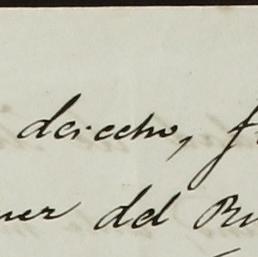 derecho, f
ner del Ru